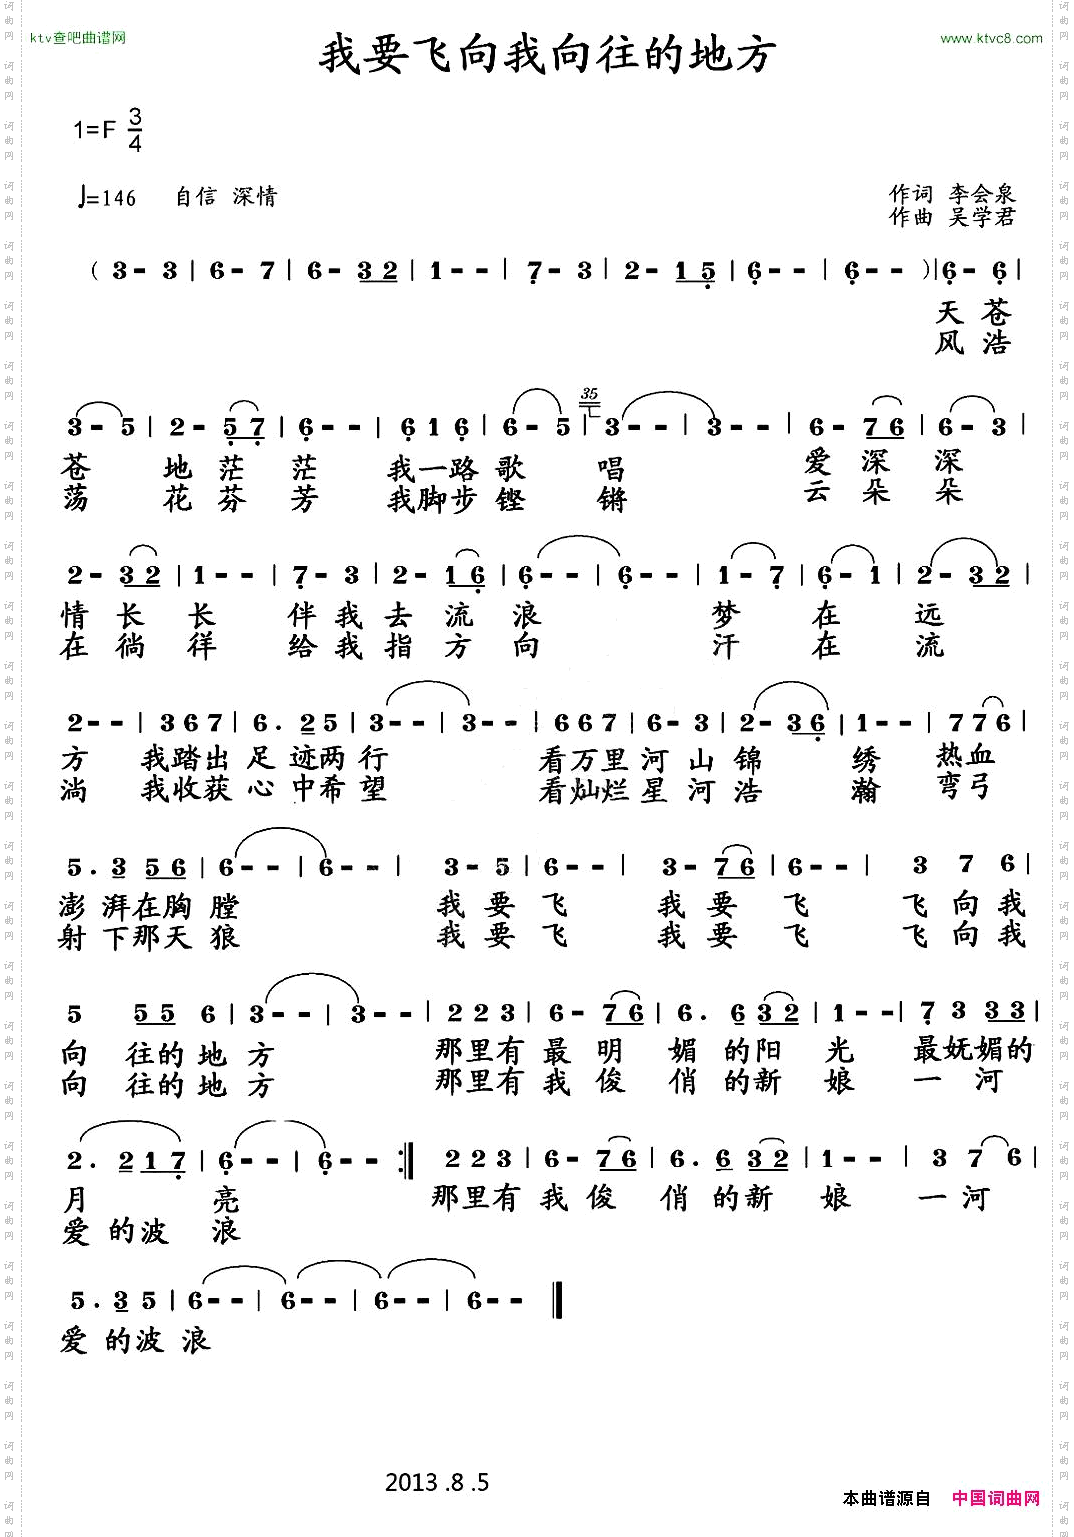 ktv查吧曲谱网
www.ktvc8.com
我要飞向我向往的地方
1=F 3/4
♩=146 自信 深情
作词 李会泉
作曲 吴学君
( 3 - 3 | 6 - 7 | 6 - 3 2 | 1 - - | 7 - 3 | 2 - 1 5 | 6 - - | 6 - - ) | 6 - 6 |
天 苍
风 浩
35
3 - 5 | 2 - 5 7 | 6 - - | 6 1 6 | 6 - 5 | 3 - - | 3 - - | 6 - 7 6 | 6 - 3 |
苍 地 茫 茫 我一路 歌 唱 爱 深 深
荡 花 芬 芳 我脚步 铿 锵 云 朵 朵
2 - 3 2 | 1 - - | 7 - 3 | 2 - 1 6 | 6 - - | 6 - - | 1 - 7 | 6 - 1 | 2 - 3 2 |
情 长 长 伴 我 去 流 浪 梦 在 远
在 徜 徉 给 我 指 方 向 汗 在 流
2 - - | 3 6 7 | 6 . 2 5 | 3 - - | 3 - - | 6 6 7 | 6 - 3 | 2 - 3 6 | 1 - - | 7 7 6 |
方 我踏出 足 迹两 行 看万里 河 山 锦 绣 热血
淌 我收获 心 中希 望 看灿烂 星 河 浩 瀚 弯弓
5 . 3 5 6 | 6 - - | 6 - - | 3 - 5 | 6 - - | 3 - 7 6 | 6 - - | 3 7 6 |
澎 湃在胸 膛 我 要 飞 我 要 飞 飞 向 我
射 下那天 狼 我 要 飞 我 要 飞 飞 向 我
5 5 5 6 | 3 - - | 3 - - | 2 2 3 | 6 - 7 6 | 6 . 6 3 2 | 1 - - | 7 3 3 3 |
向 往的 地 方 那里有 最 明 媚 的阳 光 最妩媚的
向 往的 地 方 那里有 我 俊 俏 的新 娘 一 河
2 . 2 1 7 | 6 - - | 6 - - :| 2 2 3 | 6 - 7 6 | 6 . 6 3 2 | 1 - - | 3 7 6 |
月 亮 那里有 我 俊 俏 的新 娘 一 河
爱 的波 浪
5 . 3 5 | 6 - - | 6 - - | 6 - - | 6 - - ‖
爱 的波 浪
2013 .8 .5
本曲谱源自 中国词曲网